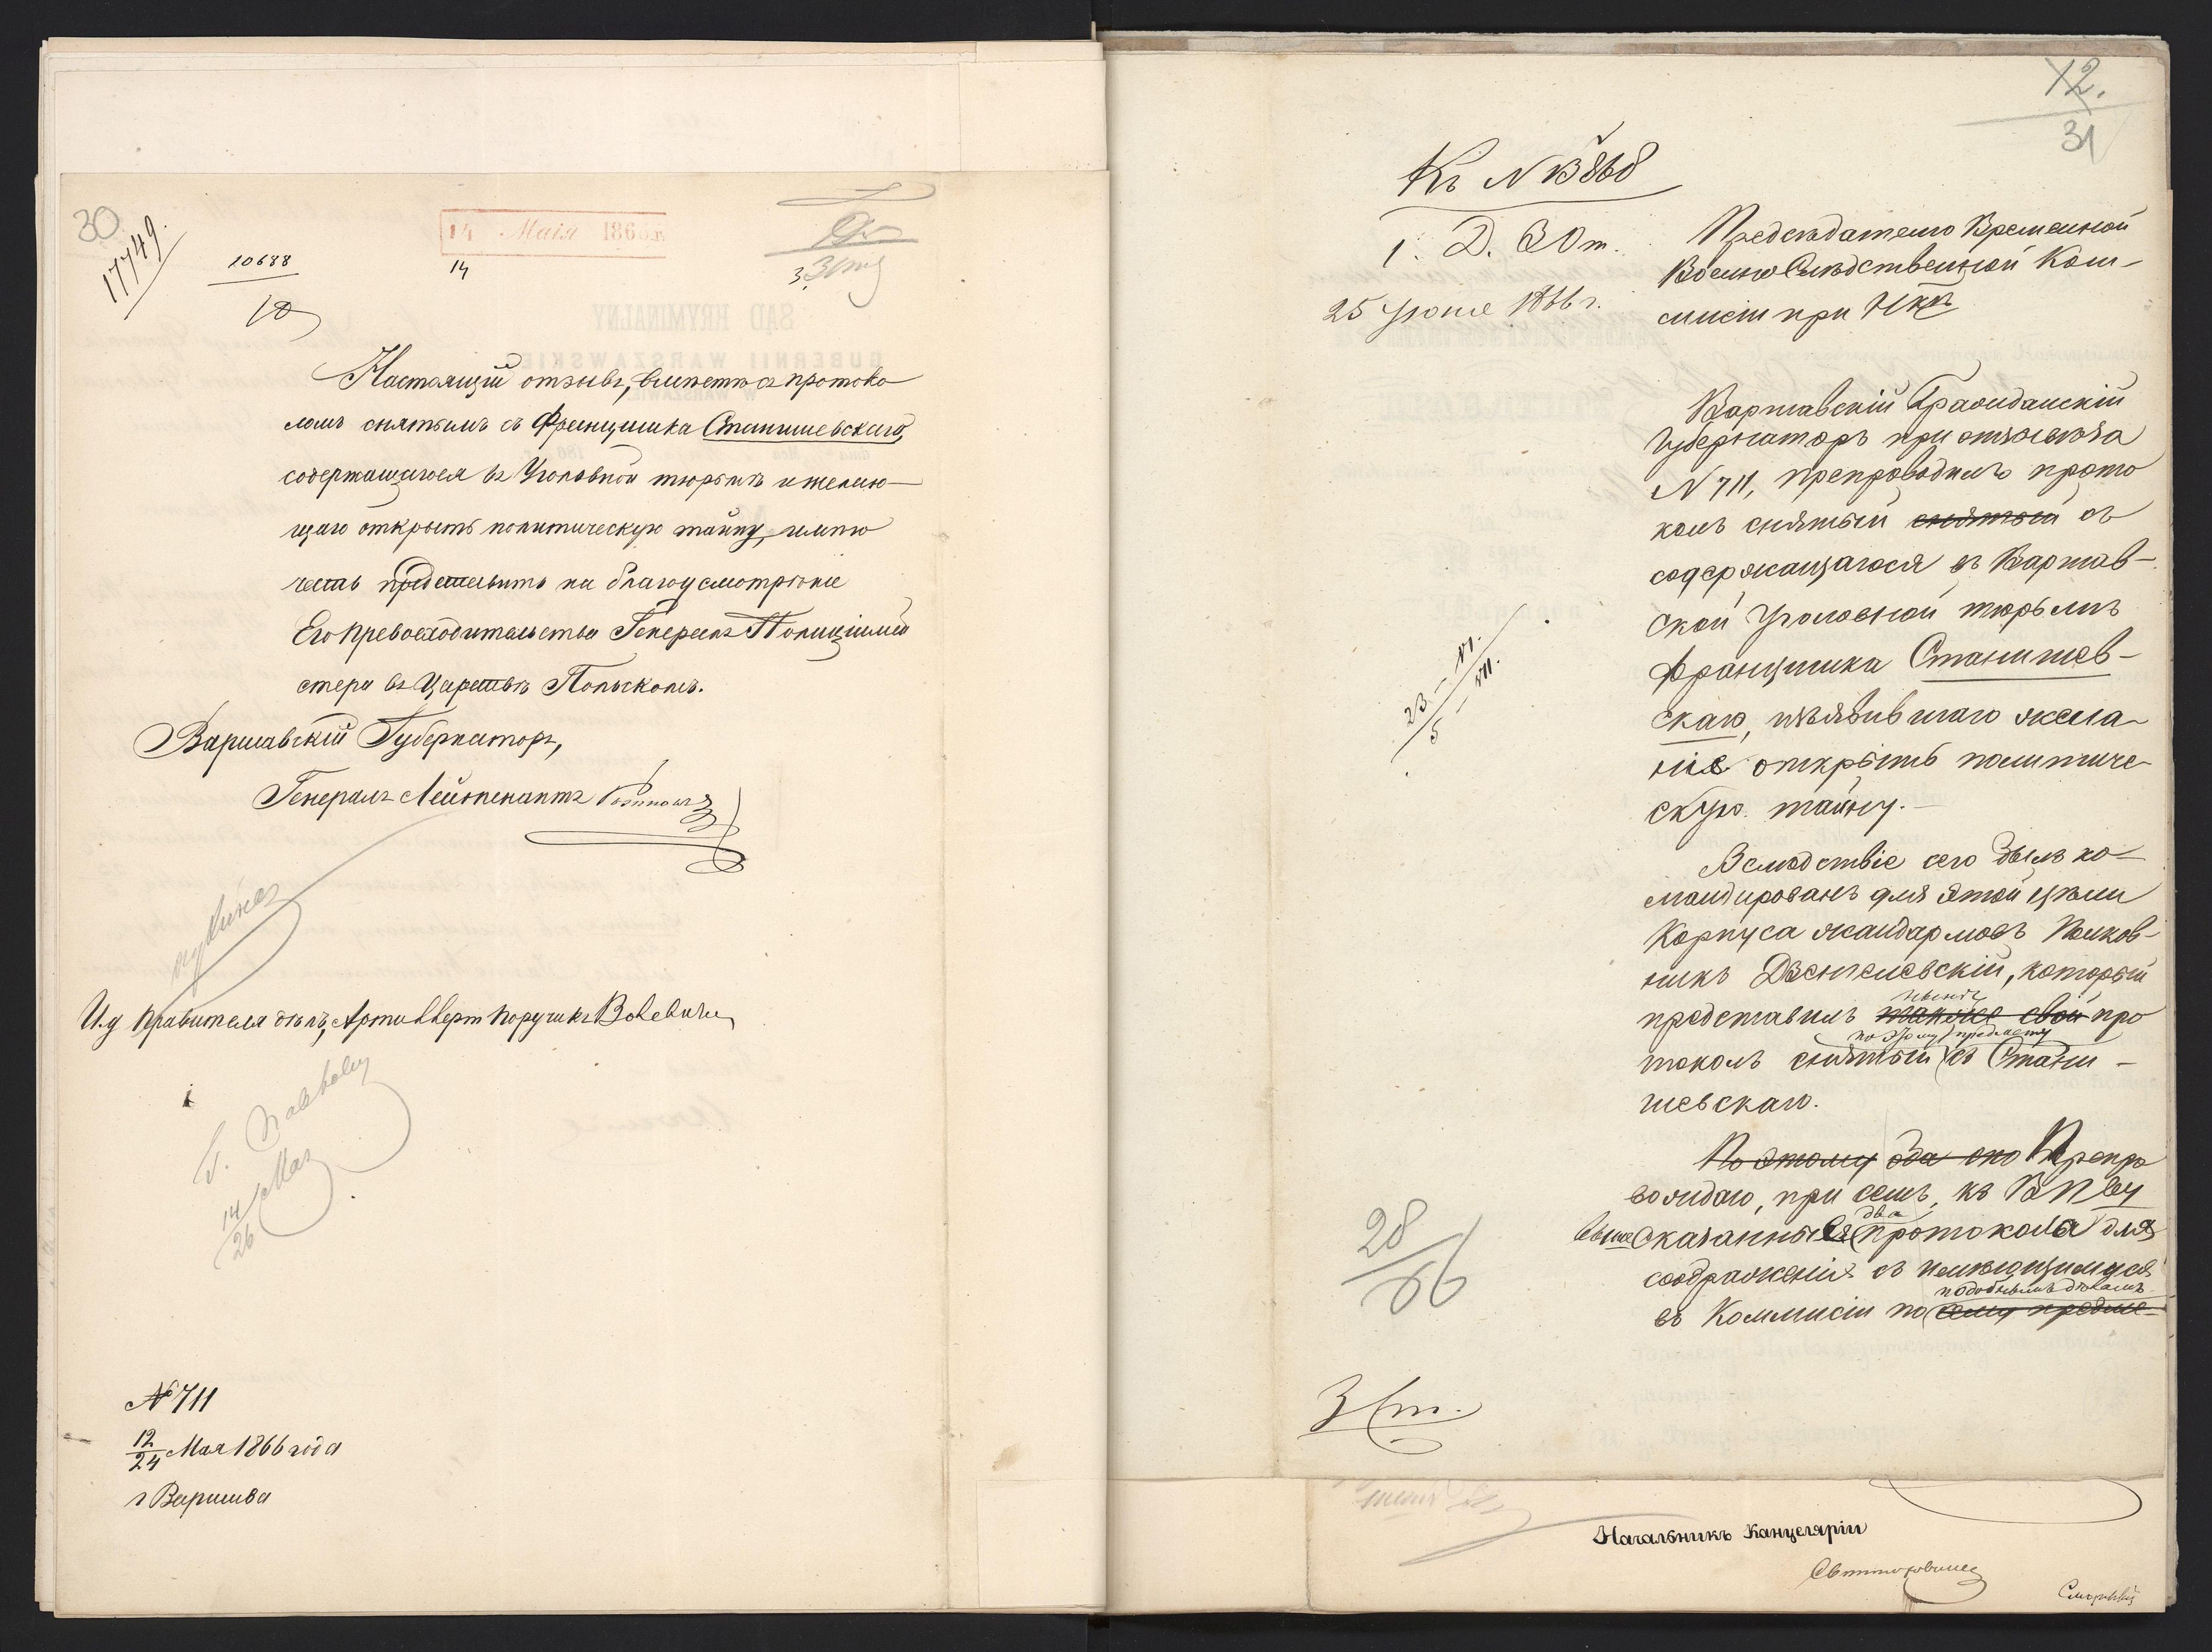 30
17749.
10688
14 Мая 1866 г.
14
Настоящій отзывъ, вмѣстѣ съ протоко-
ломъ снятымъ съ Францишка Станишевскаго,
содержащагося въ Уголовной тюрьмѣ и желаю-
щаго открыть политическую тайну, имѣю
честь представить на благоусмотрѣніе
Его Превосходительства Генералъ Полиціймей
стера въ Царствѣ Польскомъ.
Варшавскій Губернаторъ,
Генералъ Лейтенантъ
И.д Правителя дѣлъ, Артиллеріи Поручикъ
14
26 Мая
№ 711
12
24 Мая 1866 года
г Варшава
12.
31
Къ №
1. Д. 3 От.
25 Іюня 1866 г.
Предсѣдателю Временной
Военно Слѣдственной Ком-
мисіи при
Варшавскій Гражданскій
Губернаторъ при отзывѣ за
N 711, препроводилъ прото
колъ снятый снятый съ
содержащагося въ Варшав-
ской Уголовной тюрьмѣ
Францишка Станишев-
скаго, изъявившаго жела-
ніе открыть политиче-
скую тайну.-
23 - VI.
5 - VII.
Вслѣдствіе сего былъ ко-
мандированъ для этой цѣли
Корпуса жандармовъ Полков-
никъ Дзенжелевскій, который
представилъ также свой про
по этому предмету
токолъ снятый съ Стани-
шевскаго.
По этому оба они Препро
вождаю, при семъ, къ ВПву
два
вышесказанныя протокола для
соображенія съ имѣющимися
подобнымъ дѣламъ
въ Коммисіи по сему предме-
28/66
3 Ст.
Начальникъ Канцеляріи